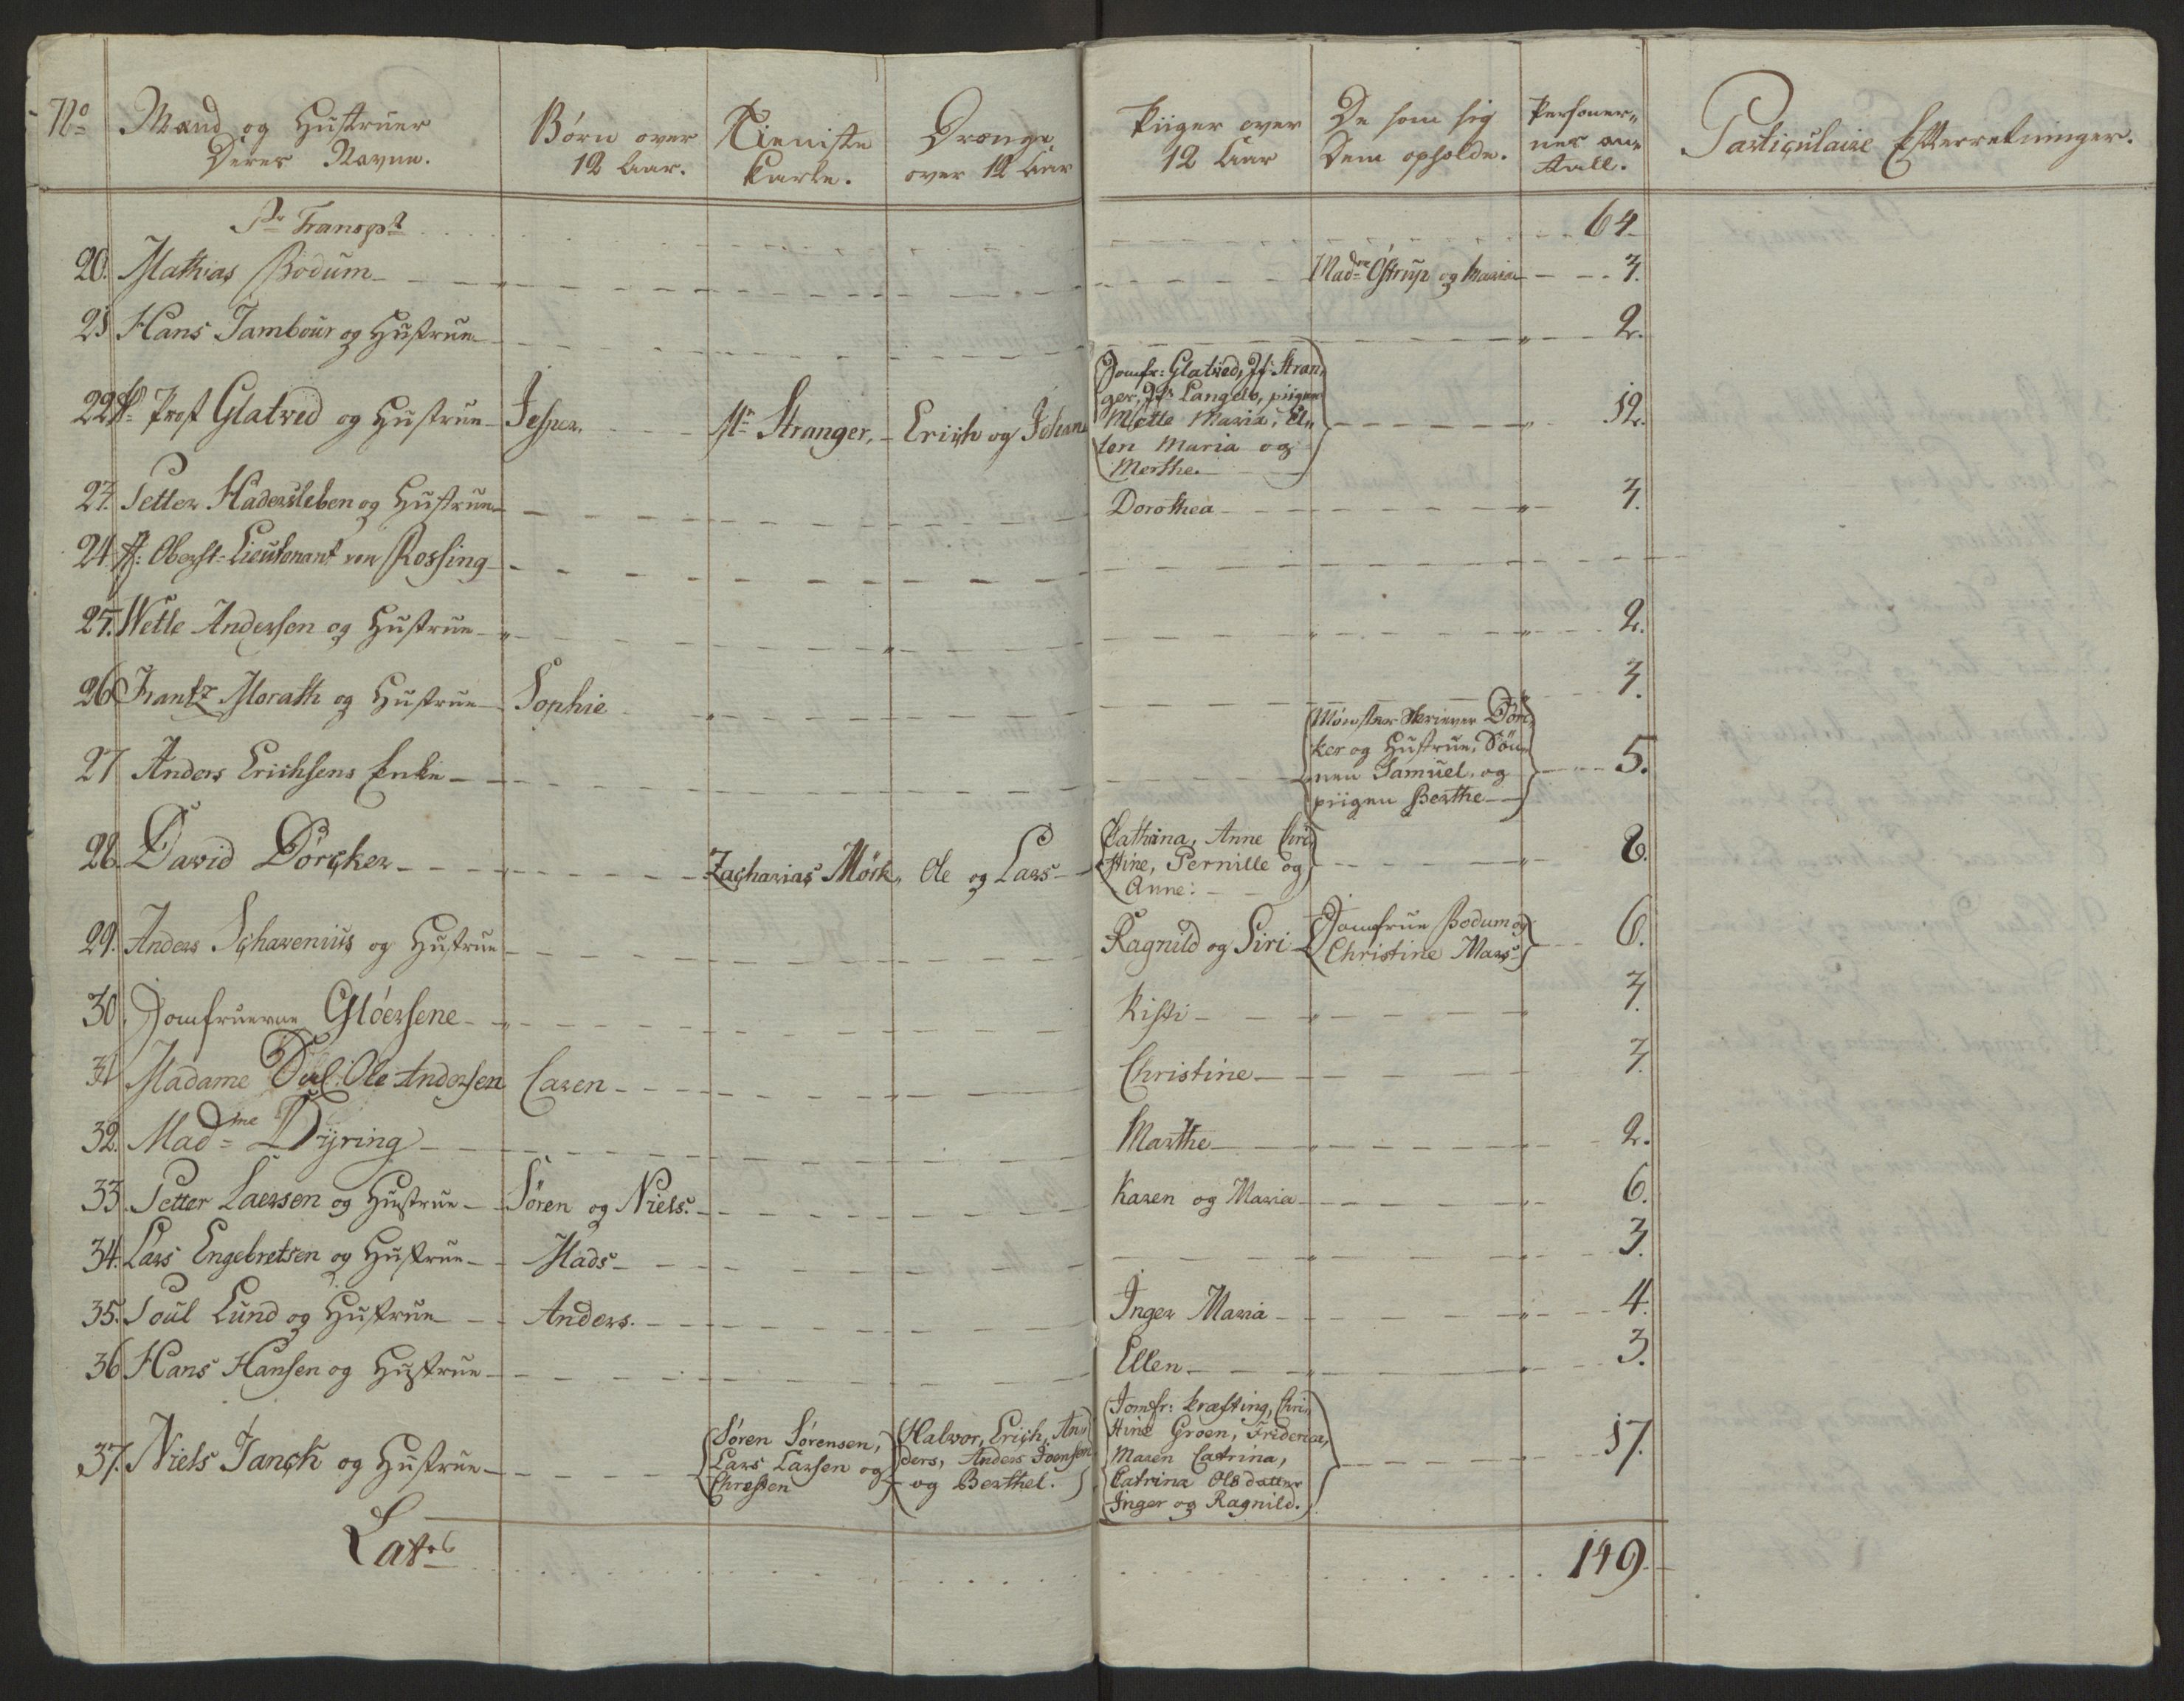 No
Mænd og Hustruer
Deres Navne.
Børn over
12 Aar.
Tieniste
Karle.
Drænge
over 12 Aar
Piiger over
12 Aar
De som sig
Dem opholde.
Personer„
nes an„
tall.
Particulaire Efterretninger.
Pr Transpt 64
20. Mathias Bodum Madme Östrup og Maria 3.
21 Hans Tambour og Hustrue 2.
22 Hr Prost Glatved og Hustrue Jesper. Mr Stranger, Erich og Johan
Jomfr: Glatved, Jfr Stran„
ger, Jfr Langelb, piigen
Mette Maria, El„
len Maria og
Merthe.
12.
23. Petter Hadersleben og Hustrue Dorothea 3.
24. Hr: Oberst-Lieutenant von Rossing
25. Wetle Andersen og Hustrue 2.
26 Frantz Morath og Hustrue Sophie 3.
27 Anders Erichsens Enke
Mönster Skriever Dör„
ker og Hustrue, Sön„
nen Samuel, og
piigen Berthe
5.
28. David Dörcker Zacharias Mörk, Ole og Lars
Cathrina, Anne Chri„
stine, Pernille og
Anne:
8.
29. Anders Scharenius og Hustrue Ragnild og Siri
Jomfrue Bodum og
Christine Mars
6.
30. Jomfruerne Glöersene Kisti 3.
31 Madame Sal: Ole Andersen Caren Christine 3.
32. Madme Dyring Marthe 2.
33. Petter Laersen og Hustrue Sören og Niels. Karen og Maria 6.
34. Lars Engebretsen og Hustrue Mads 3.
35. Poul Lund og Hustrue Anders. Inger Maria 4.
36 Hans Hansen og Hustrue Ellen 3.
37. Niels Janck og Hustrue
Søren Sørensen,
Lars Larsen og
Chresten
Halvor, Erich, An„
ders, Anders Joensen
og Berthel.
Jomfr: Kræfting, Chri„
stine Groen, Friderica,
Maren Catrina,
Catrina Olsdatter
Inger og Ragnild.
17.
Lates 149